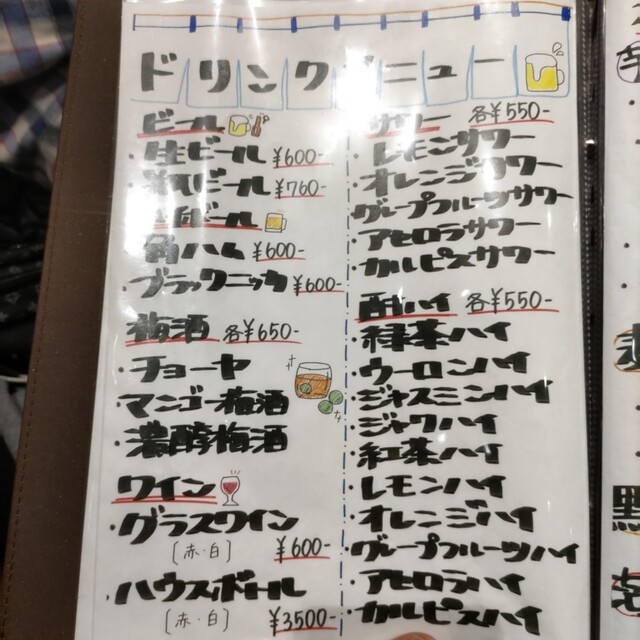 ドリンクメニュー
ビール
・生ビール ¥600-
・瓶ビール ¥760-
角ハム ¥600-
・ブラックニッカ ¥600-
梅酒 各¥650-
・チョーヤ
・マンゴー梅酒
・濃醇梅酒
ワイン
・グラスワイン
[赤・白] ¥600-
・ハウスボトール
[赤・白] ¥3500-
サワー 各¥550-
・レモンサワー
・オレンジサワー
・グレープフルーツサワー
・アセロラサワー
・カルピスサワー
酎ハイ 各¥550-
・緑茶ハイ
・ウーロンハイ
・ジャスミンハイ
・ジャワハイ
・紅茶ハイ
・レモンハイ
・オレンジハイ
・グレープフルーツハイ
・アセロラハイ
・カルピスハイ